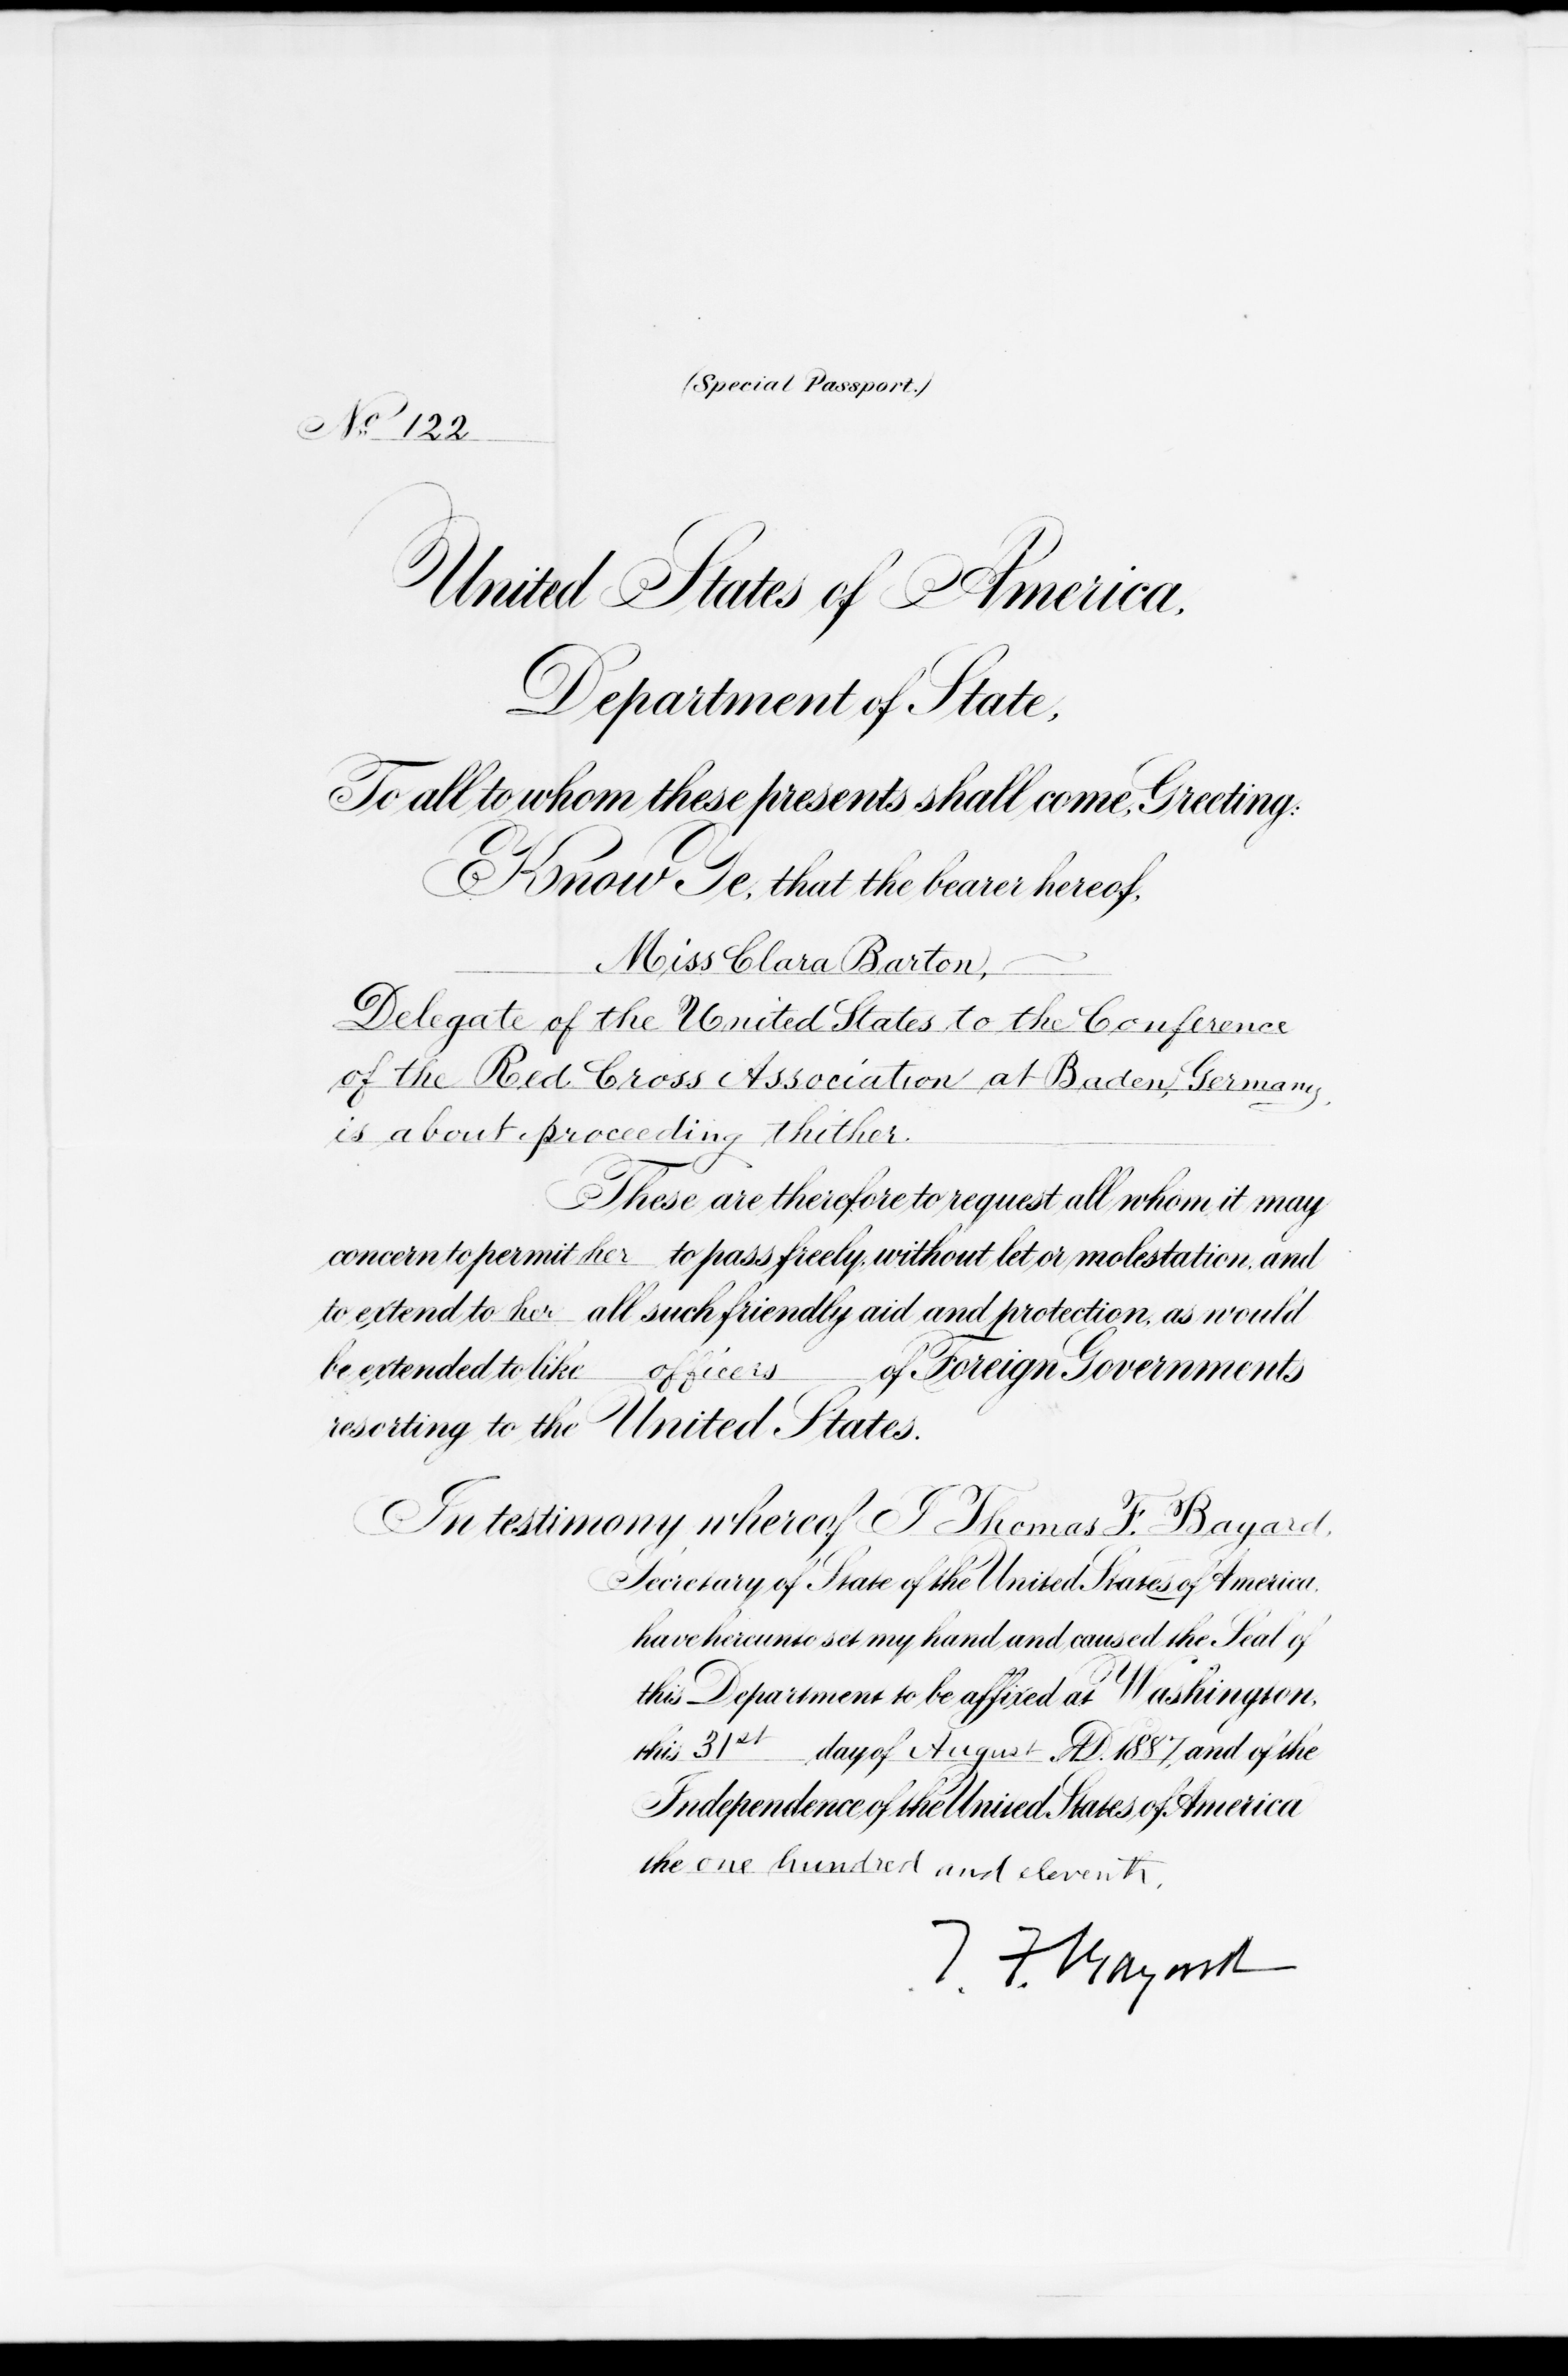 (Special Passport.)
No. 122
United States of America,
Department of State,
To all to whom these presents shall come, Greeting:
Know Ye, that the bearer hereof,
Miss Clara Barton,
Delegate of the United States to the Conference
of the Red Cross Association at Baden, Germany,
is about proceeding thither.
These are therefore to request all whom it may
concern to permit her to pass freely, without let or molestation, and
to extend to her all such friendly aid and protection, as would
be extended to like officers of Foreign Governments
resorting to the United States.
In testimony whereof I Thomas F. Bayard,
Secretary of State of the United States of America,
have hereunto set my hand and caused the Seal of
this Department to be affixed at Washington,
this 31st day of August A.D. 1887, and of the
Independence of the United States of America
the one hundred and eleventh.
T. F. Bayard